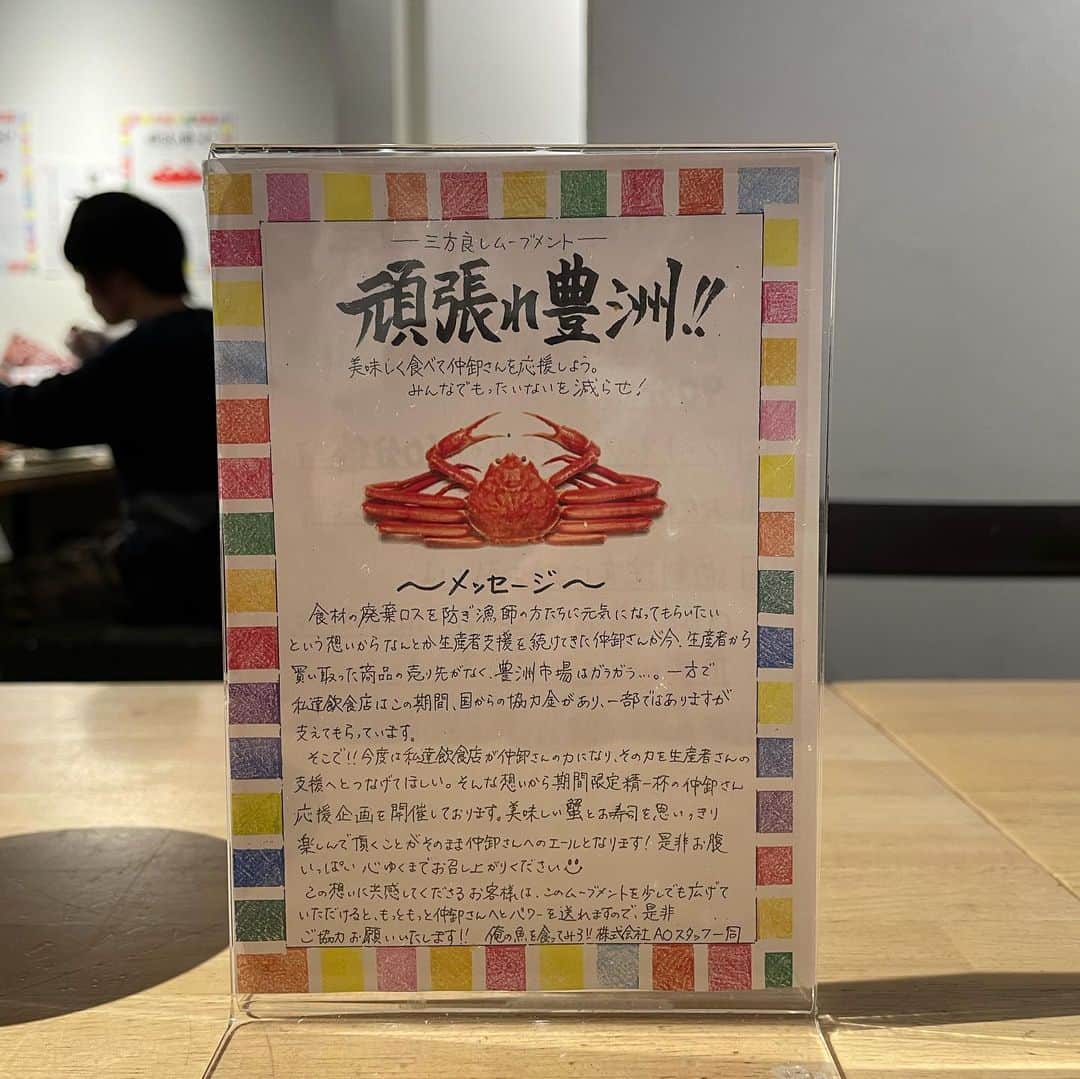 三方良しムーブメント
頑張れ豊洲!!
美味しく食べて仲卸さんを応援しよう。
みんなでもったいないを減らせ!
〜メッセージ〜
食材の廃棄ロスを防ぎ漁師の方たちに元気になってもらいたい
という想いからなんとか生産者支援を続けてきた仲卸さんが今、生産者から
買い取った商品の売り先がなく、豊洲市場はガラガラ…。一方で
私達飲食店はこの期間、国からの協力金があり、一部ではありますが
支えてもらっています。
そこで!!今度は私達飲食店が仲卸さんの力になり、その力を生産者さんの
支援へとつなげてほしい。そんな想いから期間限定精一杯の仲卸さん
応援企画を開催しております。美味しい蟹とお寿司を思いっきり
楽しんで頂くことがそのまま仲卸さんへのエールとなります!是非お腹
いっぱい心ゆくまでお召し上がりください
この想いに共感してくださるお客様は、このムーブメントを少しでも広げて
いただけると、もっともっと仲卸さんへとパワーを送れますので、是非
ご協力お願いいたします!! 俺の魚を食ってみろ!!株式会社AOスタッフ一同